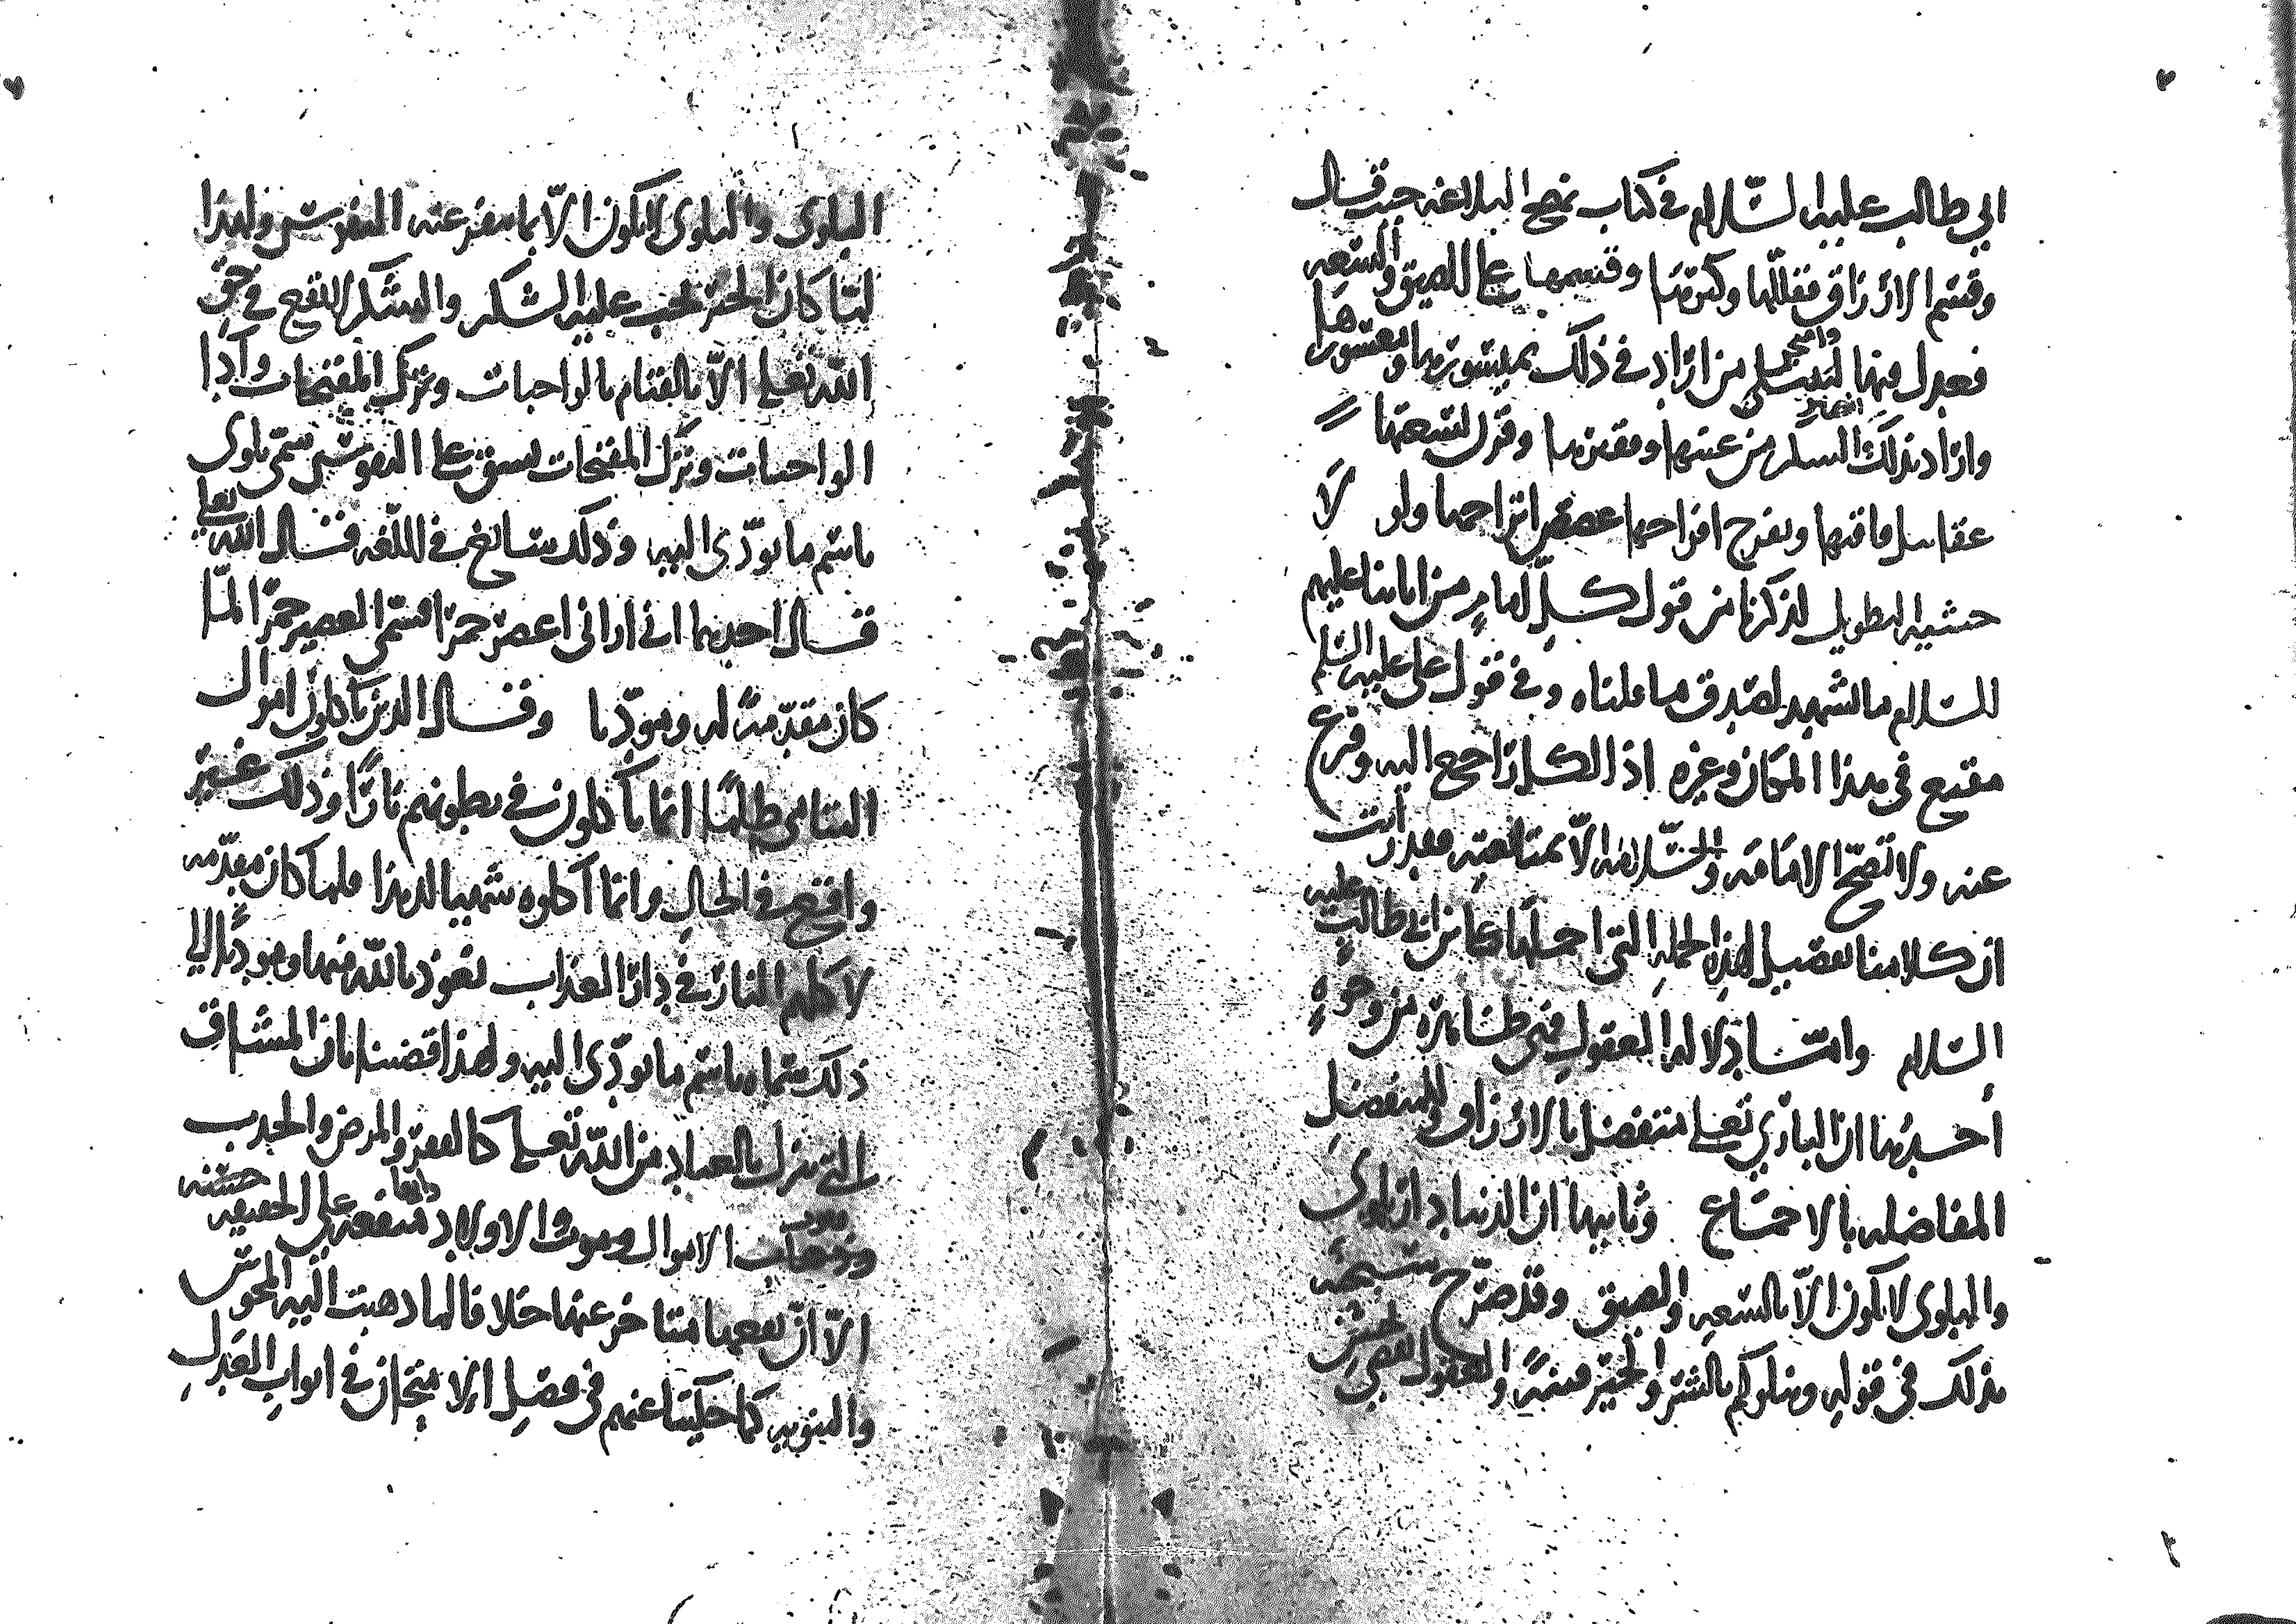 ابي طالب عليه السلام في كتاب نهج البلاغة حيث قال
وقسم الارزاق فقللها وكثرها وقسمها على الضيق والسعه
فعدل فيها ليبتلي من اراد في ذلك بميسورها ومعسورها
واراد بذلك الشكر من غنيها وفقيرها وقرن لسعتها
عقابيل فاقتها وبفرج افراحها غصص اتراحها ولو لا
خشية التطويل لذكرنا من قول كل امام من ابائنا عليهم
السلام ما يشهد بصدق ما قلناه وفي قول علي عليه السلم
مقنع في هذا المكان وغيره اذ الكل راجع اليه وفرع
عنه ولا تصح الامامة والخلافة الا بمتابعته فقد رأيت
ان كلامنا تفصيل لهذه الجملة التي اجملها علي بن ابي طالب عليه
السلام واما دلالة العقول فهي ظاهرة من وجوه
احدها ان الباري تعلى متفضل بالارزاق وللمتفضل
المفاضلة بالاجماع وثانيها ان الدنيا دار بلوى
والبلوى لا تكون الا بالسعه والضيق وقد صرح سبحنه
بذلك في قوله ونبلوكم بالشر والخير فتنة والعقول
البلوى والبلوى لا تكون الا بما تنفر عنه النفوس ولهذا
لما كان الخير يجب عليه الشكر والشكر لا يقع في حق
الله تعلى الا بالقيام بالواجبات وترك المقبحات واذا
الواجبات وترك المقبحات يشق على النفوس سمي بلوى
باسم ما يؤدي اليه وذلك سائغ في اللغه قال الله تعلى
قال احدهما اني اراني اعصر خمرا فسمى العصير خمرا لما
كان مقدمة له ومؤديا وقال الذين ياكلون اموال
اليتامى ظلما انما ياكلون في بطونهم نارا وذلك غير
واقع في الحال وانما اكلوه شهيا لذيذا فلما كان مقدمه
لاكلهم النار في دار العذاب نعوذ بالله منها ومؤديا الى
ذلك سماه باسم ما يؤدي اليه ولهذا قضينا بان المشاق
التي تنزل بالعباد من الله تعلى كالفقر والمرض والجدب
الاموال وموت الاولاد منفعه على الحقيقه حسنه
الا ان نفعها متاخر عنها خلافا لما ذهبت اليه المجوس
والثنويه كما حكينا عنهم في فصل الامتحان في ابواب العدل